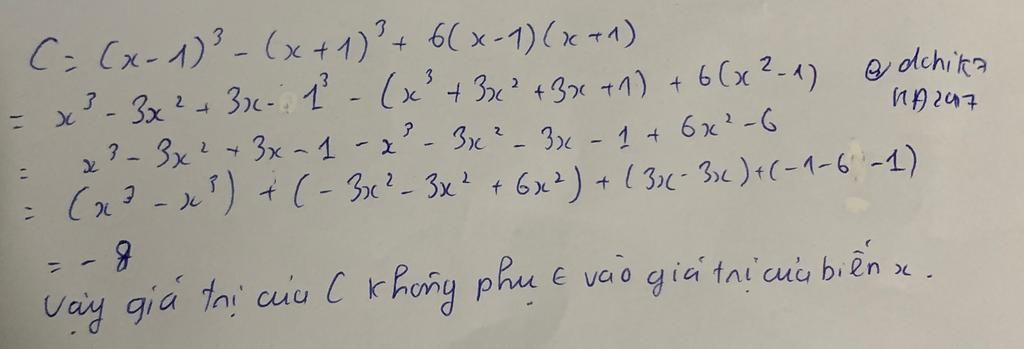 C = (x-1)³ - (x+1)³ + 6(x-1)(x+1)
= x³ - 3x² + 3x - 1³ - (x³ + 3x² + 3x + 1) + 6(x² - 1)
= x³ - 3x² + 3x - 1 - x³ - 3x² - 3x - 1 + 6x² - 6
= (x³ - x³) + (-3x² - 3x² + 6x²) + (3x - 3x) + (-1 - 6 - 1)
= -8
Vậy giá trị của C không phụ ∈ vào giá trị của biến x.